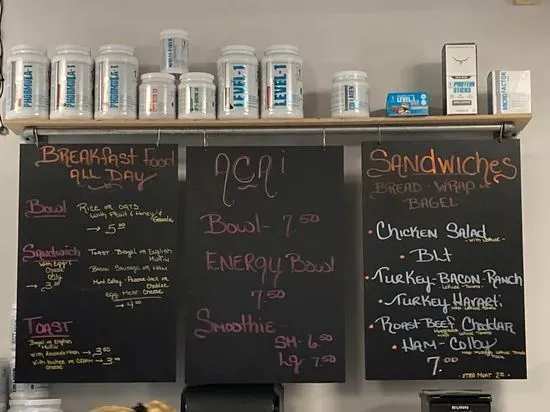 FORMULA-1
FORMULA-1
FORMULA-1
LEVEL-1
LEVEL-1
COLLAGEN
LEVEL 1
PROTEIN
STICKS
MICROFACTOR
BREAKFAST FOOD
ALL DAY
BOWL
RICE OR OATS
WITH FRUIT & HONEY &
GRANOLA
→ 5.00
SANDWICH
WITH EGG &
CHEESE
ONLY
→ 3.
TOAST BAGEL OR ENGLISH
MUFFIN
BACON SAUSAGE OR HAM
CHEDDAR
EGG MEAT CHEESE
→ 4.00
TOAST
BAGEL OR ENGLISH
MUFFIN
WITH AVOCADO MASH → 3.50
WITH BUTTER OR CREAM → 3.00
CHEESE
ACAI
BOWL - 7.50
ENERGY BOWL
7.50
SMOOTHIE -
SM - 6.50
Lg - 7.50
SANDWICHES
BREAD - WRAP OR
BAGEL
• CHICKEN SALAD
- WITH LETTUCE -
• BLT
• TURKEY-BACON-RANCH
LETTUCE - TOMATO
• TURKEY HAVARTI
MAYO LETTUCE TOMATO
• ROAST BEEF CHEDDAR
LETTUCE TOMATO
• HAM - COLBY
MAYO MUSTARD LETTUCE TOMATO
7.00
- XTRA MEAT 2.00 -
BUNN